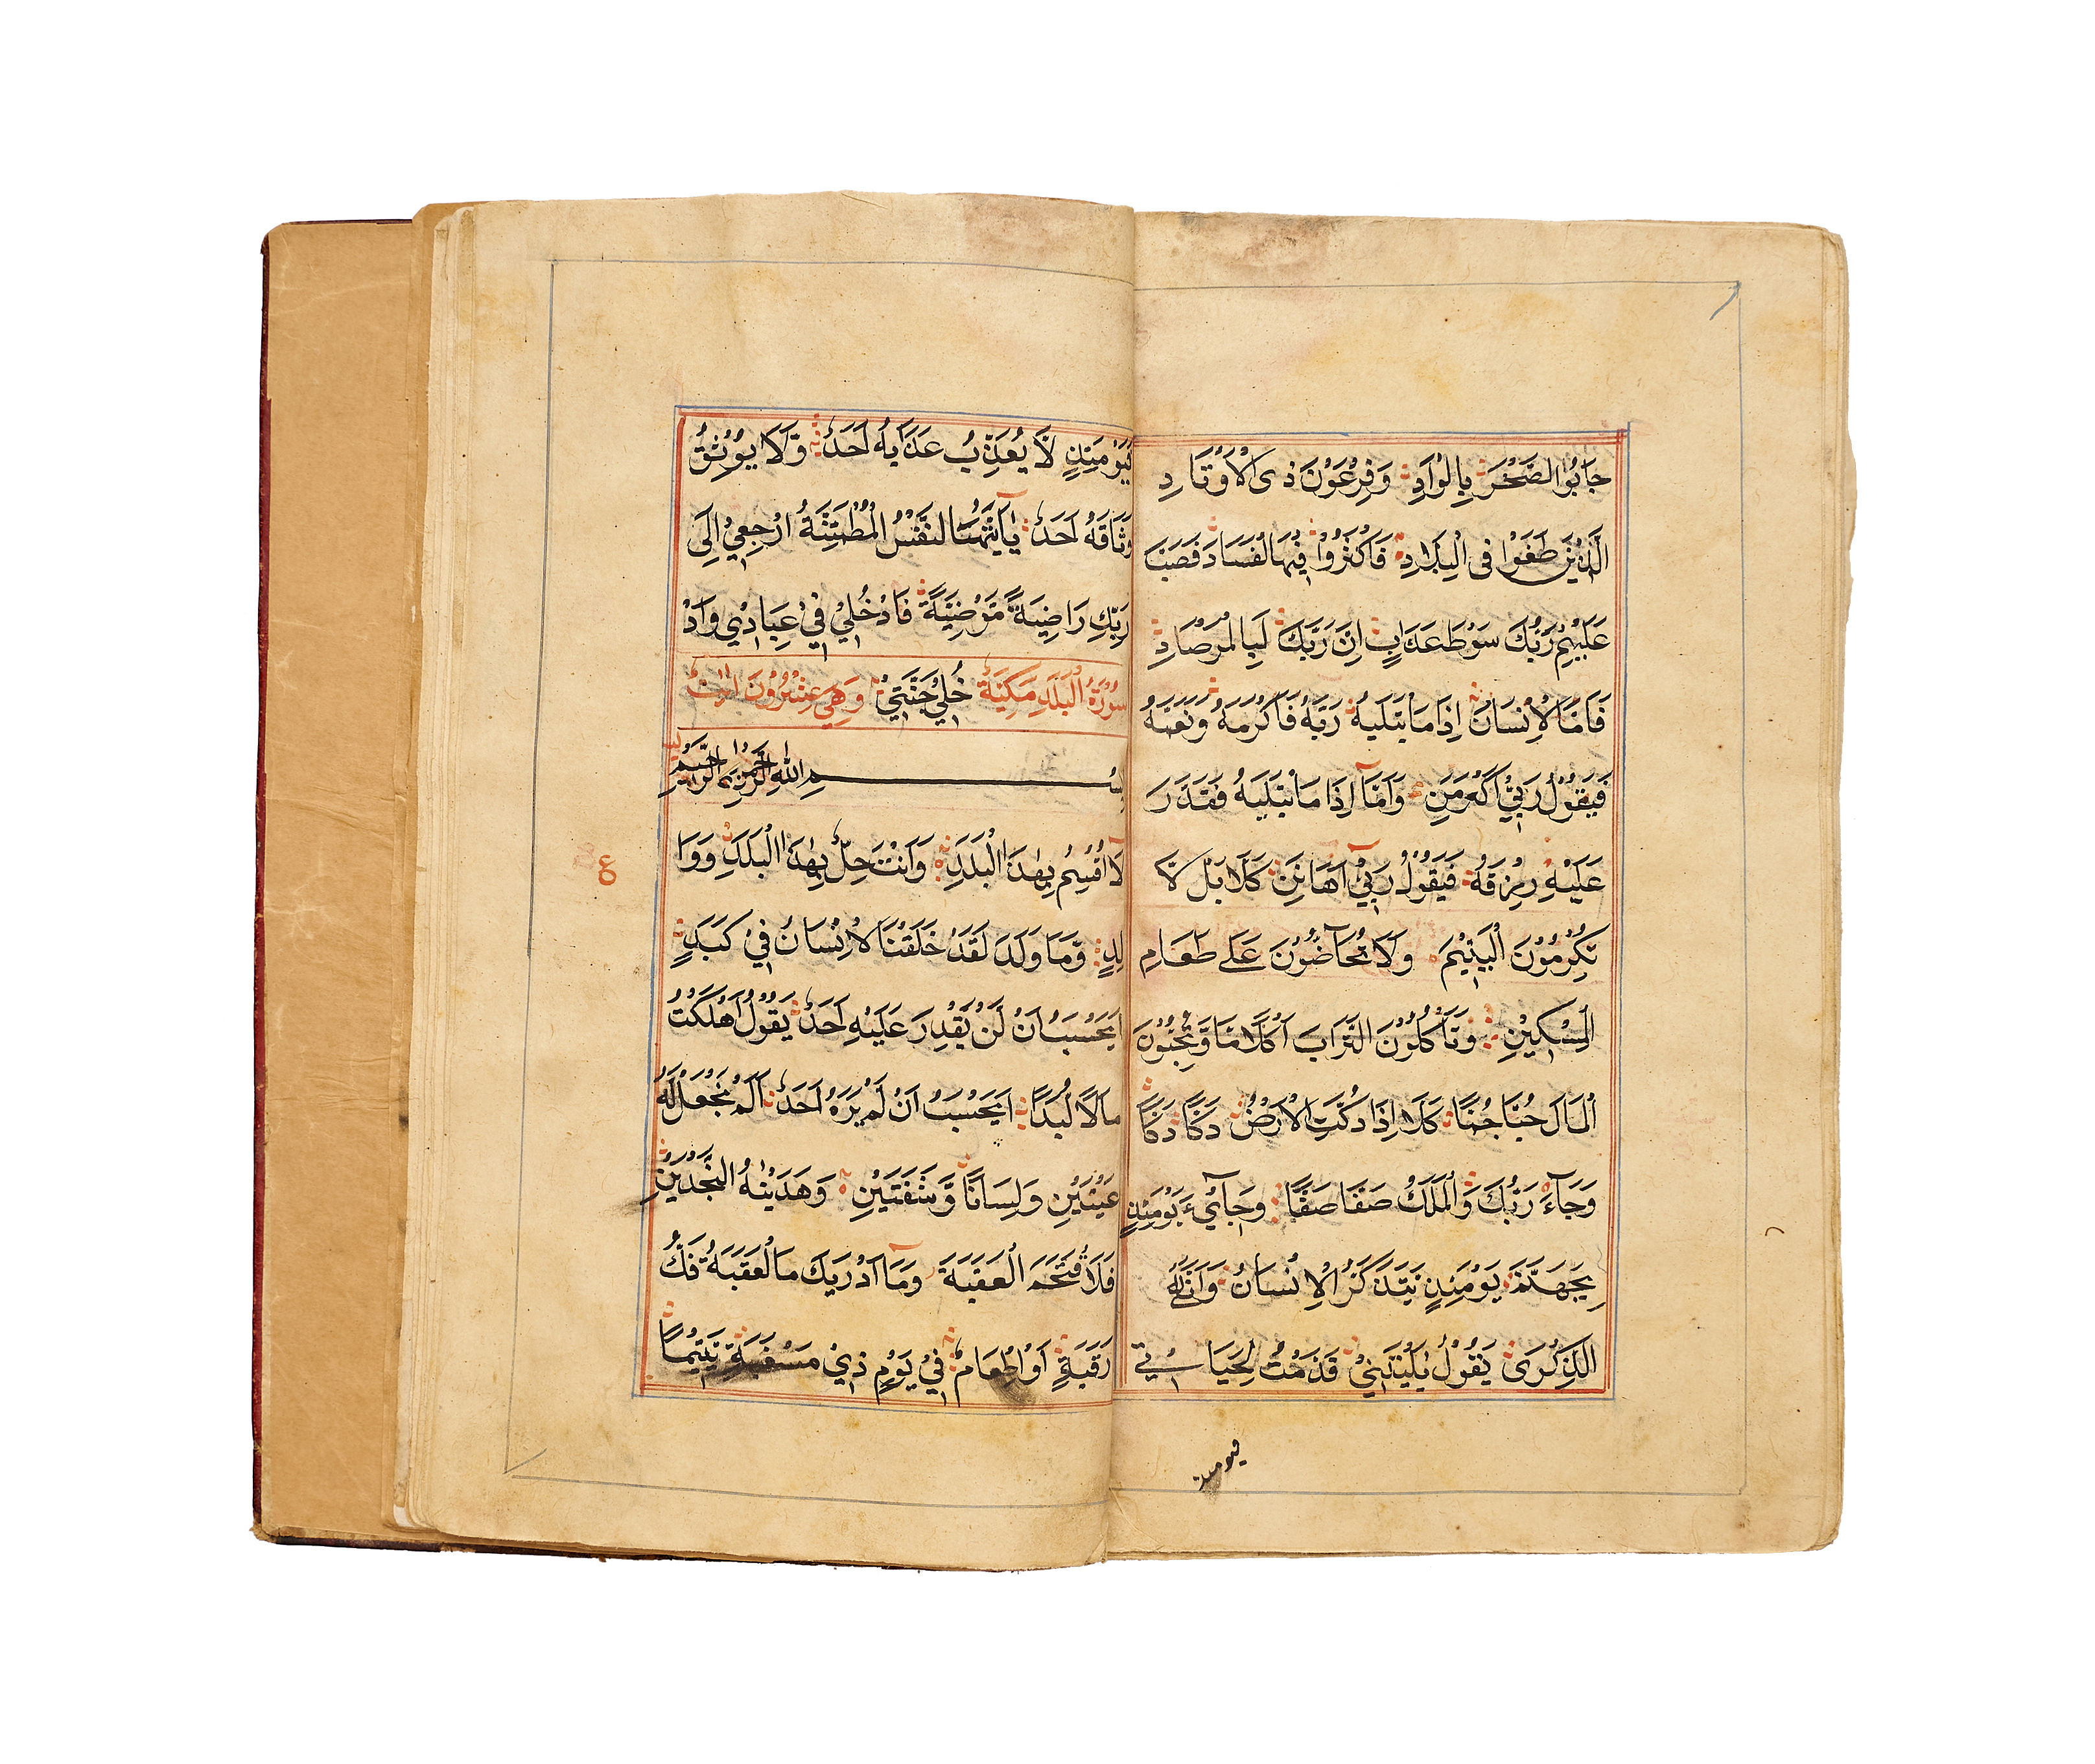 جَابُوا الصَّخْرَ بِالْوَادِ وَفِرْعَوْنَ ذِى الْاَوْتَادِ
الَّذِيْنَ طَغَوْا فِى الْبِلَادِ فَاَكْثَرُوْا فِيْهَا الْفَسَادَ فَصَبَّ
عَلَيْهِمْ رَبُّكَ سَوْطَ عَذَابٍ اِنَّ رَبَّكَ لَبِالْمِرْصَادِ
فَاَمَّا الْاِنْسَانُ اِذَا مَا ابْتَلَيهُ رَبَّهُ فَاَكْرَمَهُ وَنَعَّمَهُ
فَيَقُوْلُ رَبِّيْ اَكْرَمَنِ وَاَمَّا اِذَا مَا ابْتَلَيهُ فَقَدَرَ
عَلَيْهِ رِزْقَهُ فَيَقُوْلُ رَبِّيْ اَهَانَنِ كَلَّا بَلْ لَّا
تُكْرِمُوْنَ الْيَتِيْمَ وَلَا تَحَاضُّوْنَ عَلَى طَعَامِ
الْمِسْكِيْنِ وَتَأْكُلُوْنَ التُّرَاثَ اَكْلًا لَمَّا وَّتُحِبُّوْنَ
الْمَالَ حُبًّا جُمًّا كَلَّا اِذَا دُكَّتِ الْاَرْضُ دَكًّا دَكًّا
وَجَآءَ رَبُّكَ وَالْمَلَكُ صَفًّا صَفًّا وَجِايْءَ يَوْمَئِذٍ
بِجَهَنَّمَ يَوْمَئِذٍ يَتَذَكَّرُ الْاِنْسَانُ وَاَنّٰى لَهُ
الذِّكْرَى يَقُوْلُ يٰلَيْتَنِيْ قَدَّمْتُ لِحَيَاتِيْ
فيومئذ
فَيَوْمَئِذٍ لَّا يُعَذِّبُ عَذَابَهُ اَحَدٌ وَّلَا يُوْثِقُ
وَثَاقَهُ اَحَدٌ يٰآ اَيَّتُهَا النَّفْسُ الْمُطْمَئِنَّةُ ارْجِعِيْ اِلَى
رَبِّكِ رَاضِيَةً مَّرْضِيَّةً فَادْخُلِيْ فِيْ عِبَادِيْ وَادْ
سُوْرَةُ الْبَلَدِ مَكِّيَّةٌ خُلِيْ جَنَّتِيْ وَهِيَ عِشْرُوْنَ اٰيٰت
بِسْمِ اللّٰهِ الرَّحْمٰنِ الرَّحِيْمِ
لَآ اُقْسِمُ بِهٰذَا الْبَلَدِ وَاَنْتَ حِلٌّ بِهٰذَا الْبَلَدِ وَوَا
ع
لِدٍ وَّمَا وَلَدَ لَقَدْ خَلَقْنَا الْاِنْسَانَ فِيْ كَبَدٍ
اَيَحْسَبُ اَنْ لَنْ يَقْدِرَ عَلَيْهِ اَحَدٌ يَقُوْلُ اَهْلَكْتُ
مَالًا لُبَدًا اَيَحْسَبُ اَنْ لَمْ يَرَهُ اَحَدٌ اَلَمْ نَجْعَلْ لَهُ
عَيْنَيْنِ وَلِسَانًا وَّشَفَتَيْنِ وَهَدَيْنٰهُ النَّجْدَيْنِ
فَلَا اقْتَحَمَ الْعَقَبَةَ وَمَآ اَدْرٰيكَ مَا الْعَقَبَةُ فَكُّ
رَقَبَةٍ اَوْ اِطْعَامٌ فِيْ يَوْمٍ ذِيْ مَسْغَبَةٍ يَتِيْمًا